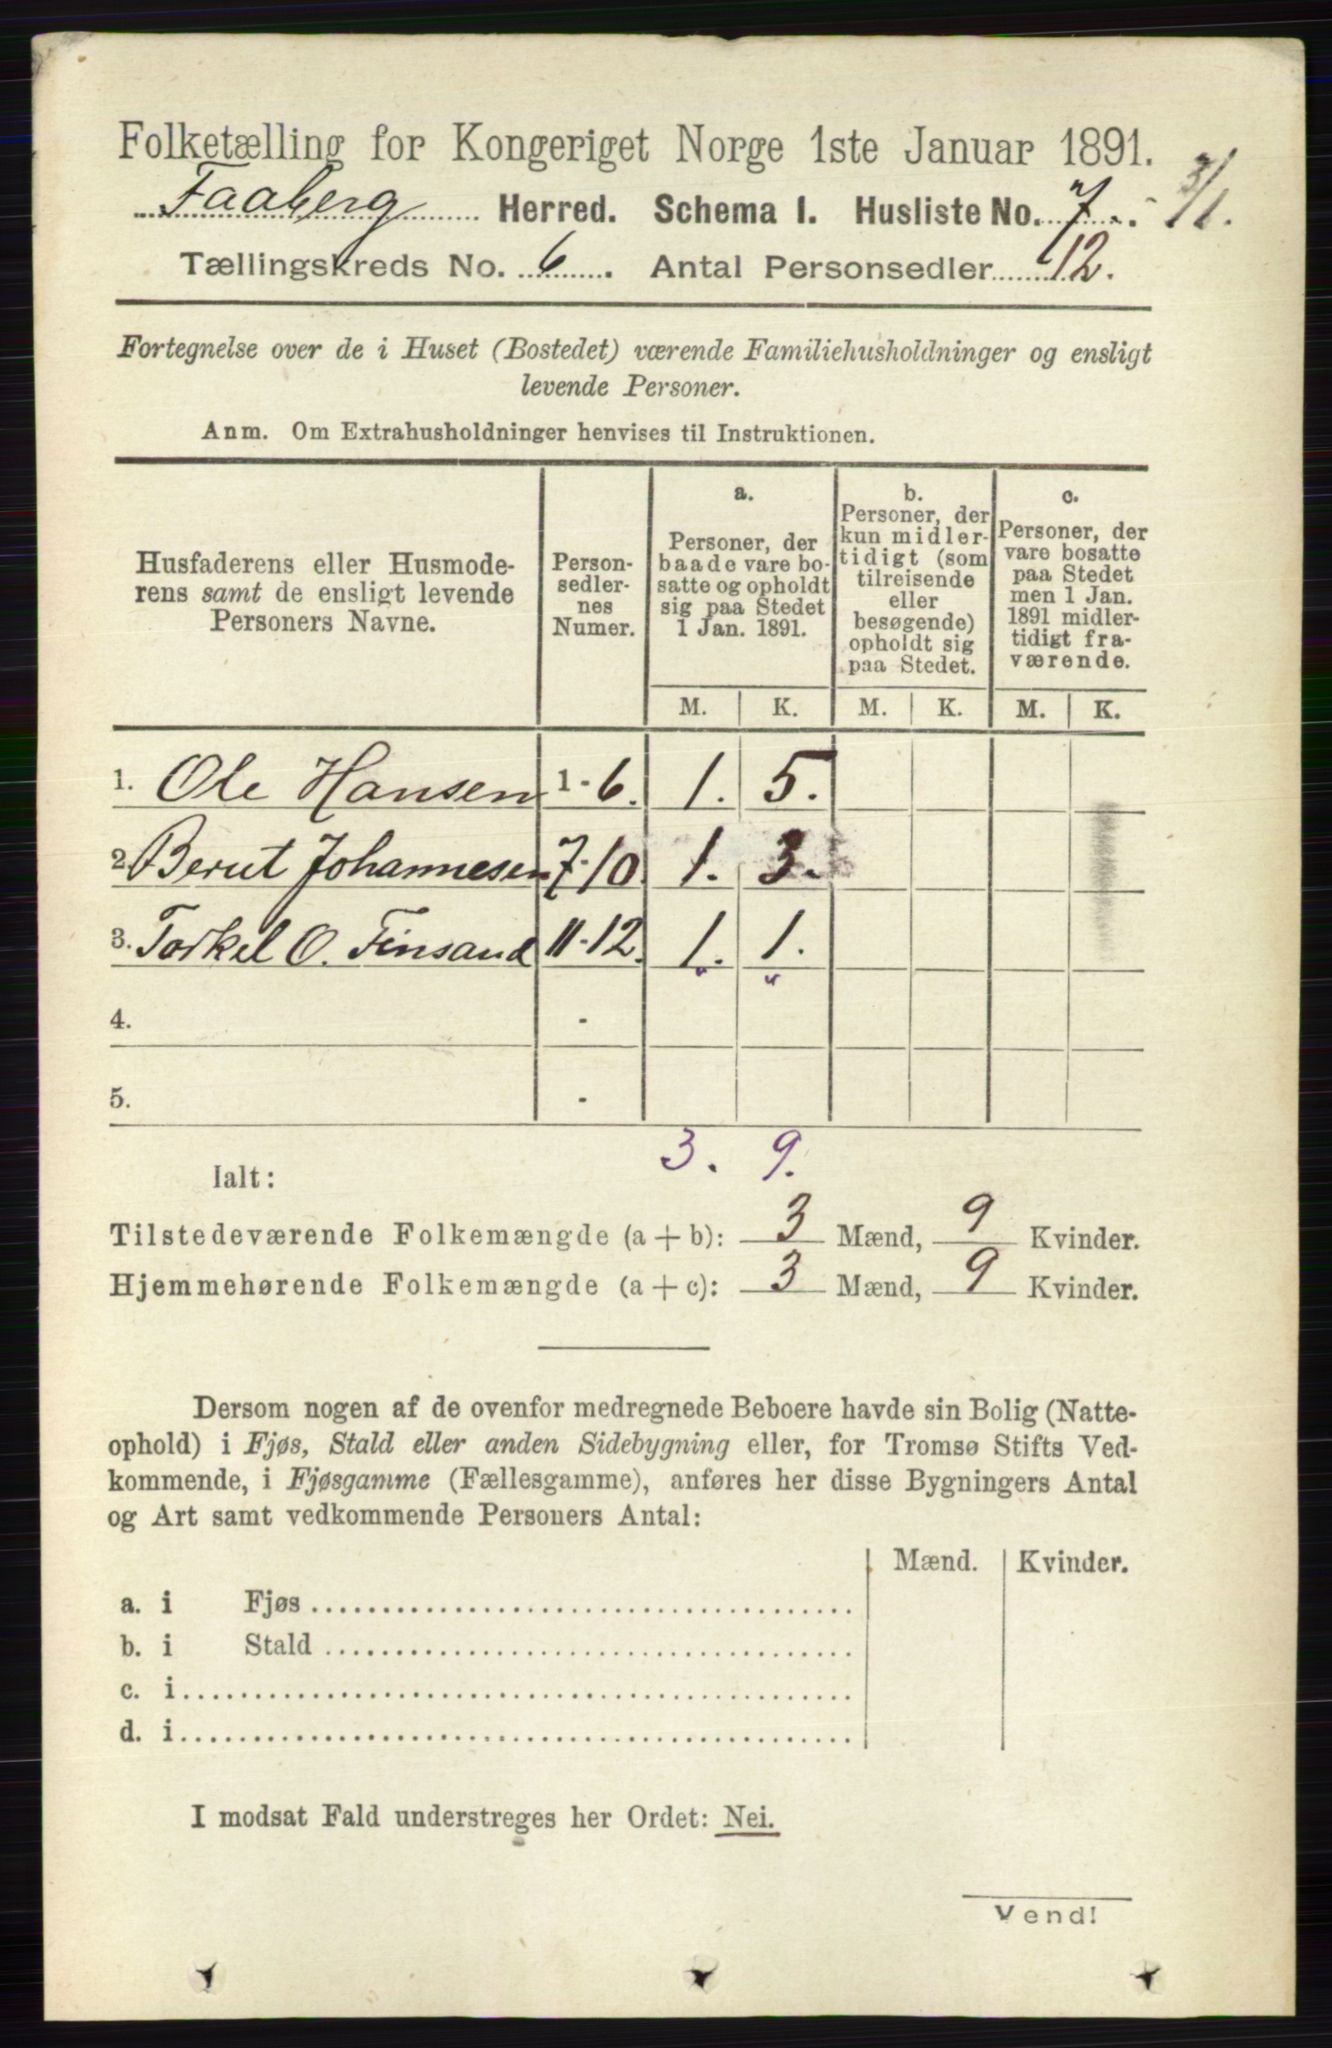 Folketælling for Kongeriget Norge 1ste Januar 1891.
Faaberg Herred. Schema I. Husliste No. 7. 3/1.
Tællingskreds No. 6. Antal Personsedler 12.
Fortegnelse over de i Huset (Bostedet) værende Familiehusholdninger og ensligt
levende Personer.
Anm. Om Extrahusholdninger henvises til Instruktionen.
Husfaderens eller Husmode-
rens samt de ensligt levende
Personers Navne.
Person-
sedler-
nes
Numer.
a.
Personer, der
baade vare bo-
satte og opholdt
sig paa Stedet
1 Jan. 1891.
b.
Personer, der
kun midler-
tidigt (som
tilreisende
eller
besøgende)
opholdt sig
paa Stedet.
c.
Personer, der
vare bosatte
paa Stedet
men 1 Jan.
1891 midler-
tidigt fra-
værende.
M. K. M. K. M. K.
1. Ole Hansen 1-6. 1. 5.
2. Berut Johannesen 7-10. 1. 3.
3. Torkel O. Finsand 11-12. 1. 1.
4. -
5. -
3. 9.
Ialt:
Tilstedeværende Folkemængde (a + b): 3 Mænd, 9 Kvinder.
Hjemmehørende Folkemængde (a + c): 3 Mænd, 9 Kvinder.
Dersom nogen af de ovenfor medregnede Beboere havde sin Bolig (Natte-
ophold) i Fjøs, Stald eller anden Sidebygning eller, for Tromsø Stifts Ved-
kommende, i Fjøsgamme (Fællesgamme), anføres her disse Bygningers Antal
og Art samt vedkommende Personers Antal:
Mænd. Kvinder.
a. i Fjøs
b. i Stald
c. i
d. i
I modsat Fald understreges her Ordet: Nei.
Vend!